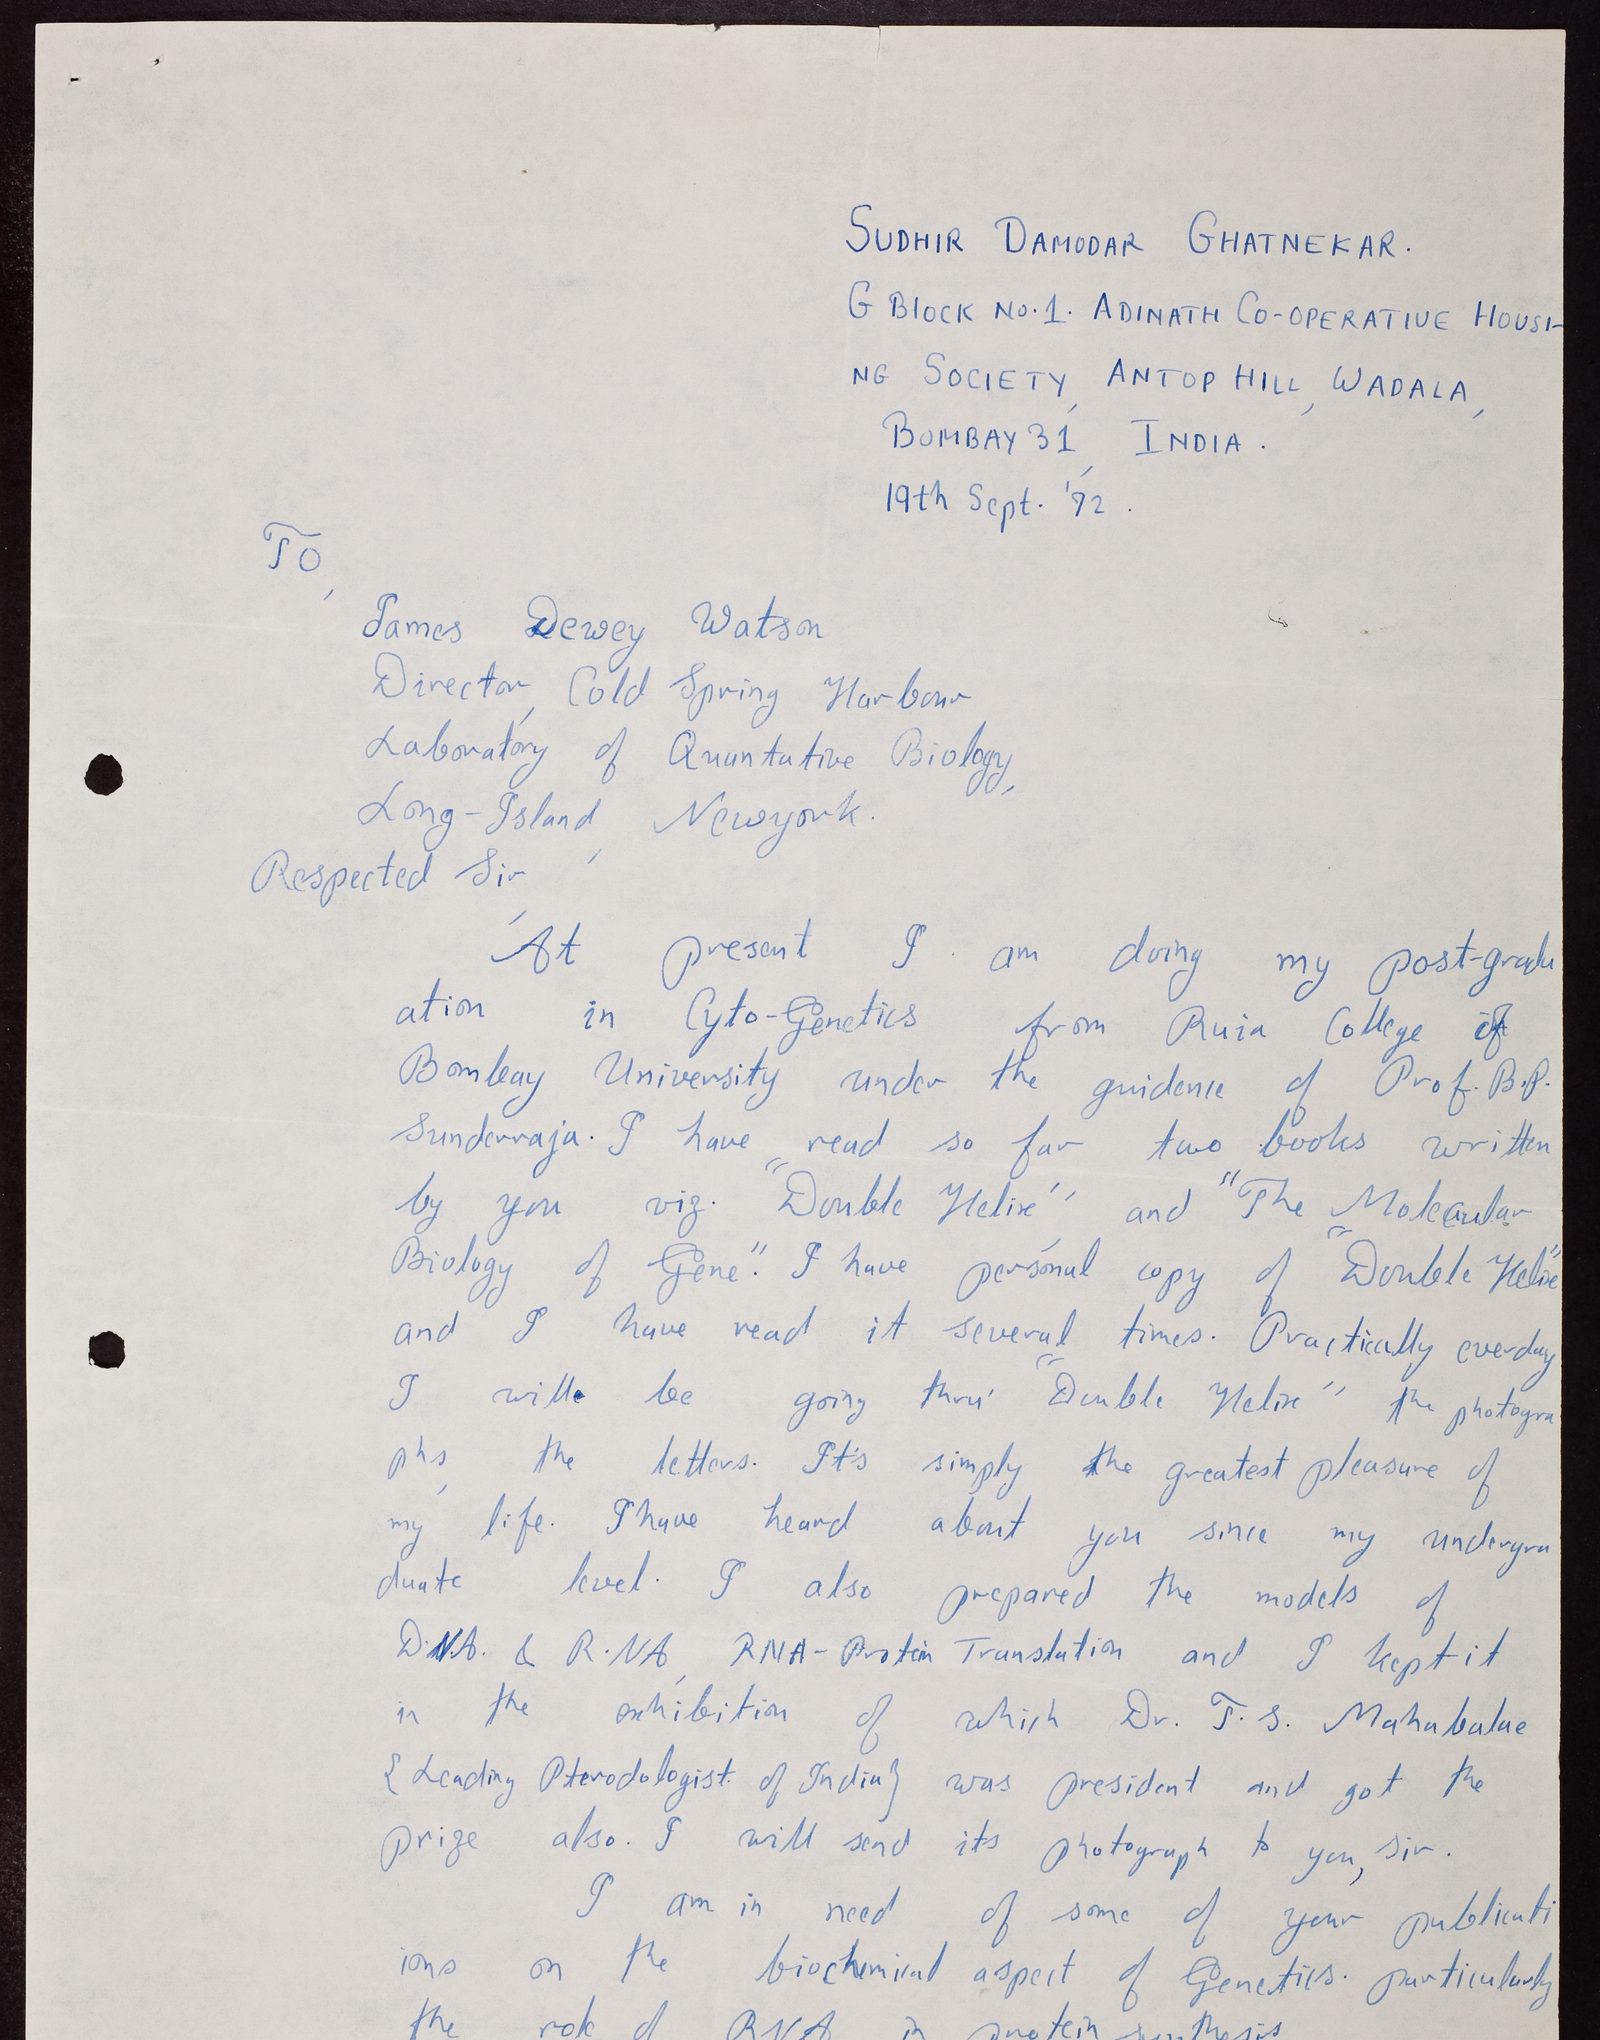 SUDHIR DAMODAR GHATNEKAR.
G BLOCK NO.1. ADINATH CO-OPERATIVE HOUSI-
NG SOCIETY, ANTOP HILL, WADALA,
BOMBAY 31, INDIA.
19th Sept. '72.
To,
James Dewey Watson
Director, Cold Spring Harbour
Laboratory of Quantative Biology,
Long-Island, Newyork.
Respected Sir,
At present I am doing my post-gradu
ation in Cyto-Genetics from Ruia College of
Bombay University under the guidence of Prof. B.P.
Sunderraja. I have read so far two books written
by you viz. "Double Helix" and "The Molecular
Biology of Gene". I have personal copy of "Double Helix"
and I have read it several times. Practically everday
I will be going thru' "Double Helix" the photogra
phs, the letters. It's simply the greatest pleasure of
my life. I have heard about you since my undergra
duate level. I also prepared the models of
D.N.A. & R.NA, RNA-Protein Translation and I kept it
in the exhibition of which Dr. T.S. Mahabalae
{Leading Pterodologist of India} was president and got the
prize also. I will send its photograph to you, sir.
I am in need of some of your publicati
ions on the biochemical aspect of Genetics. particularly
the role of RNA in protein synthesis